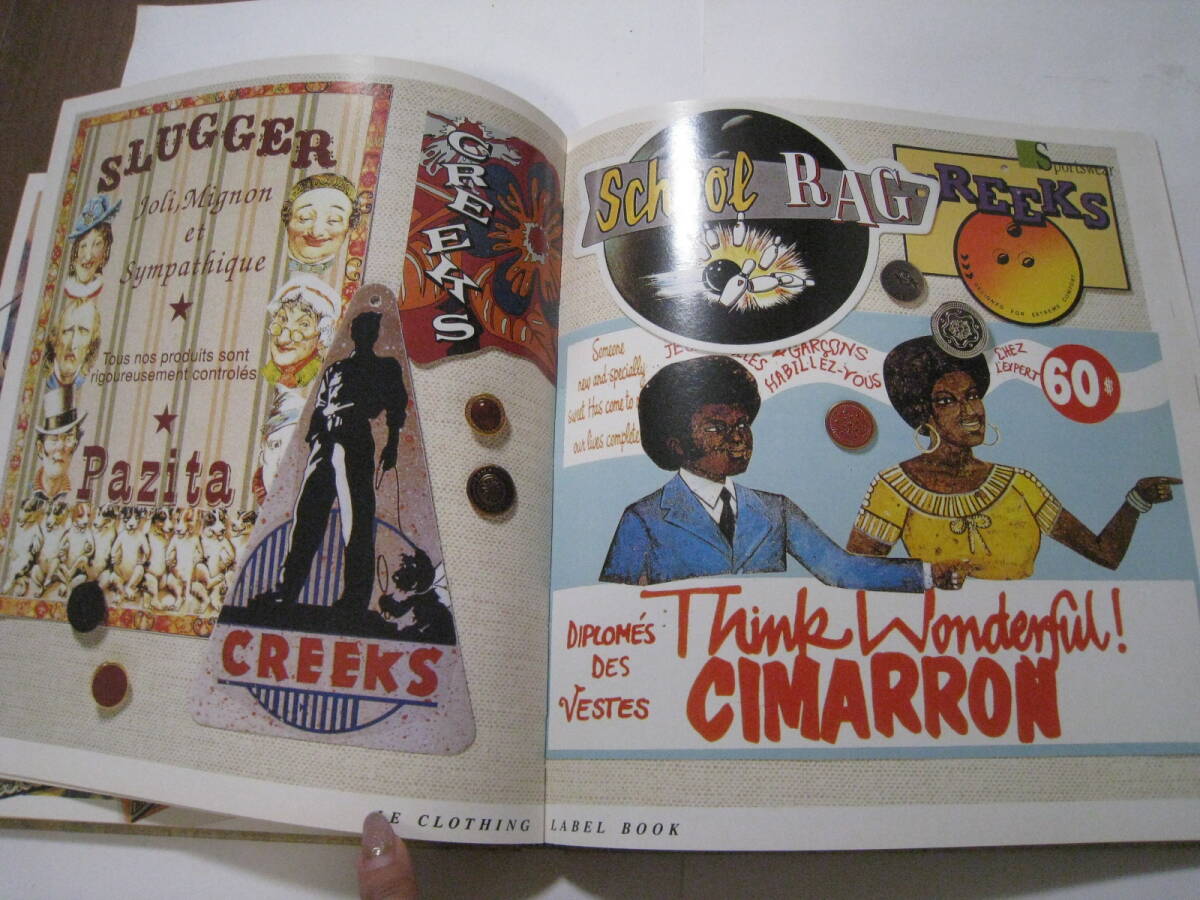 SLUGGER
Joli, Mignon
et
Sympathique
Tous nos produits sont
rigoureusement controlés
Pazita
CREEKS
CREEKS
School RAG
Sportswear
REEKS
DESIGNED FOR EXTREME COMFORT
Someone
new and specially
sweet Has come to
our lives complete
GARÇONS
HABILLEZ-VOUS
CHEZ
L'EXPERT
60$
DIPLOMÉS
DES
VESTES
Think Wonderful!
CIMARRON
LE CLOTHING LABEL BOOK